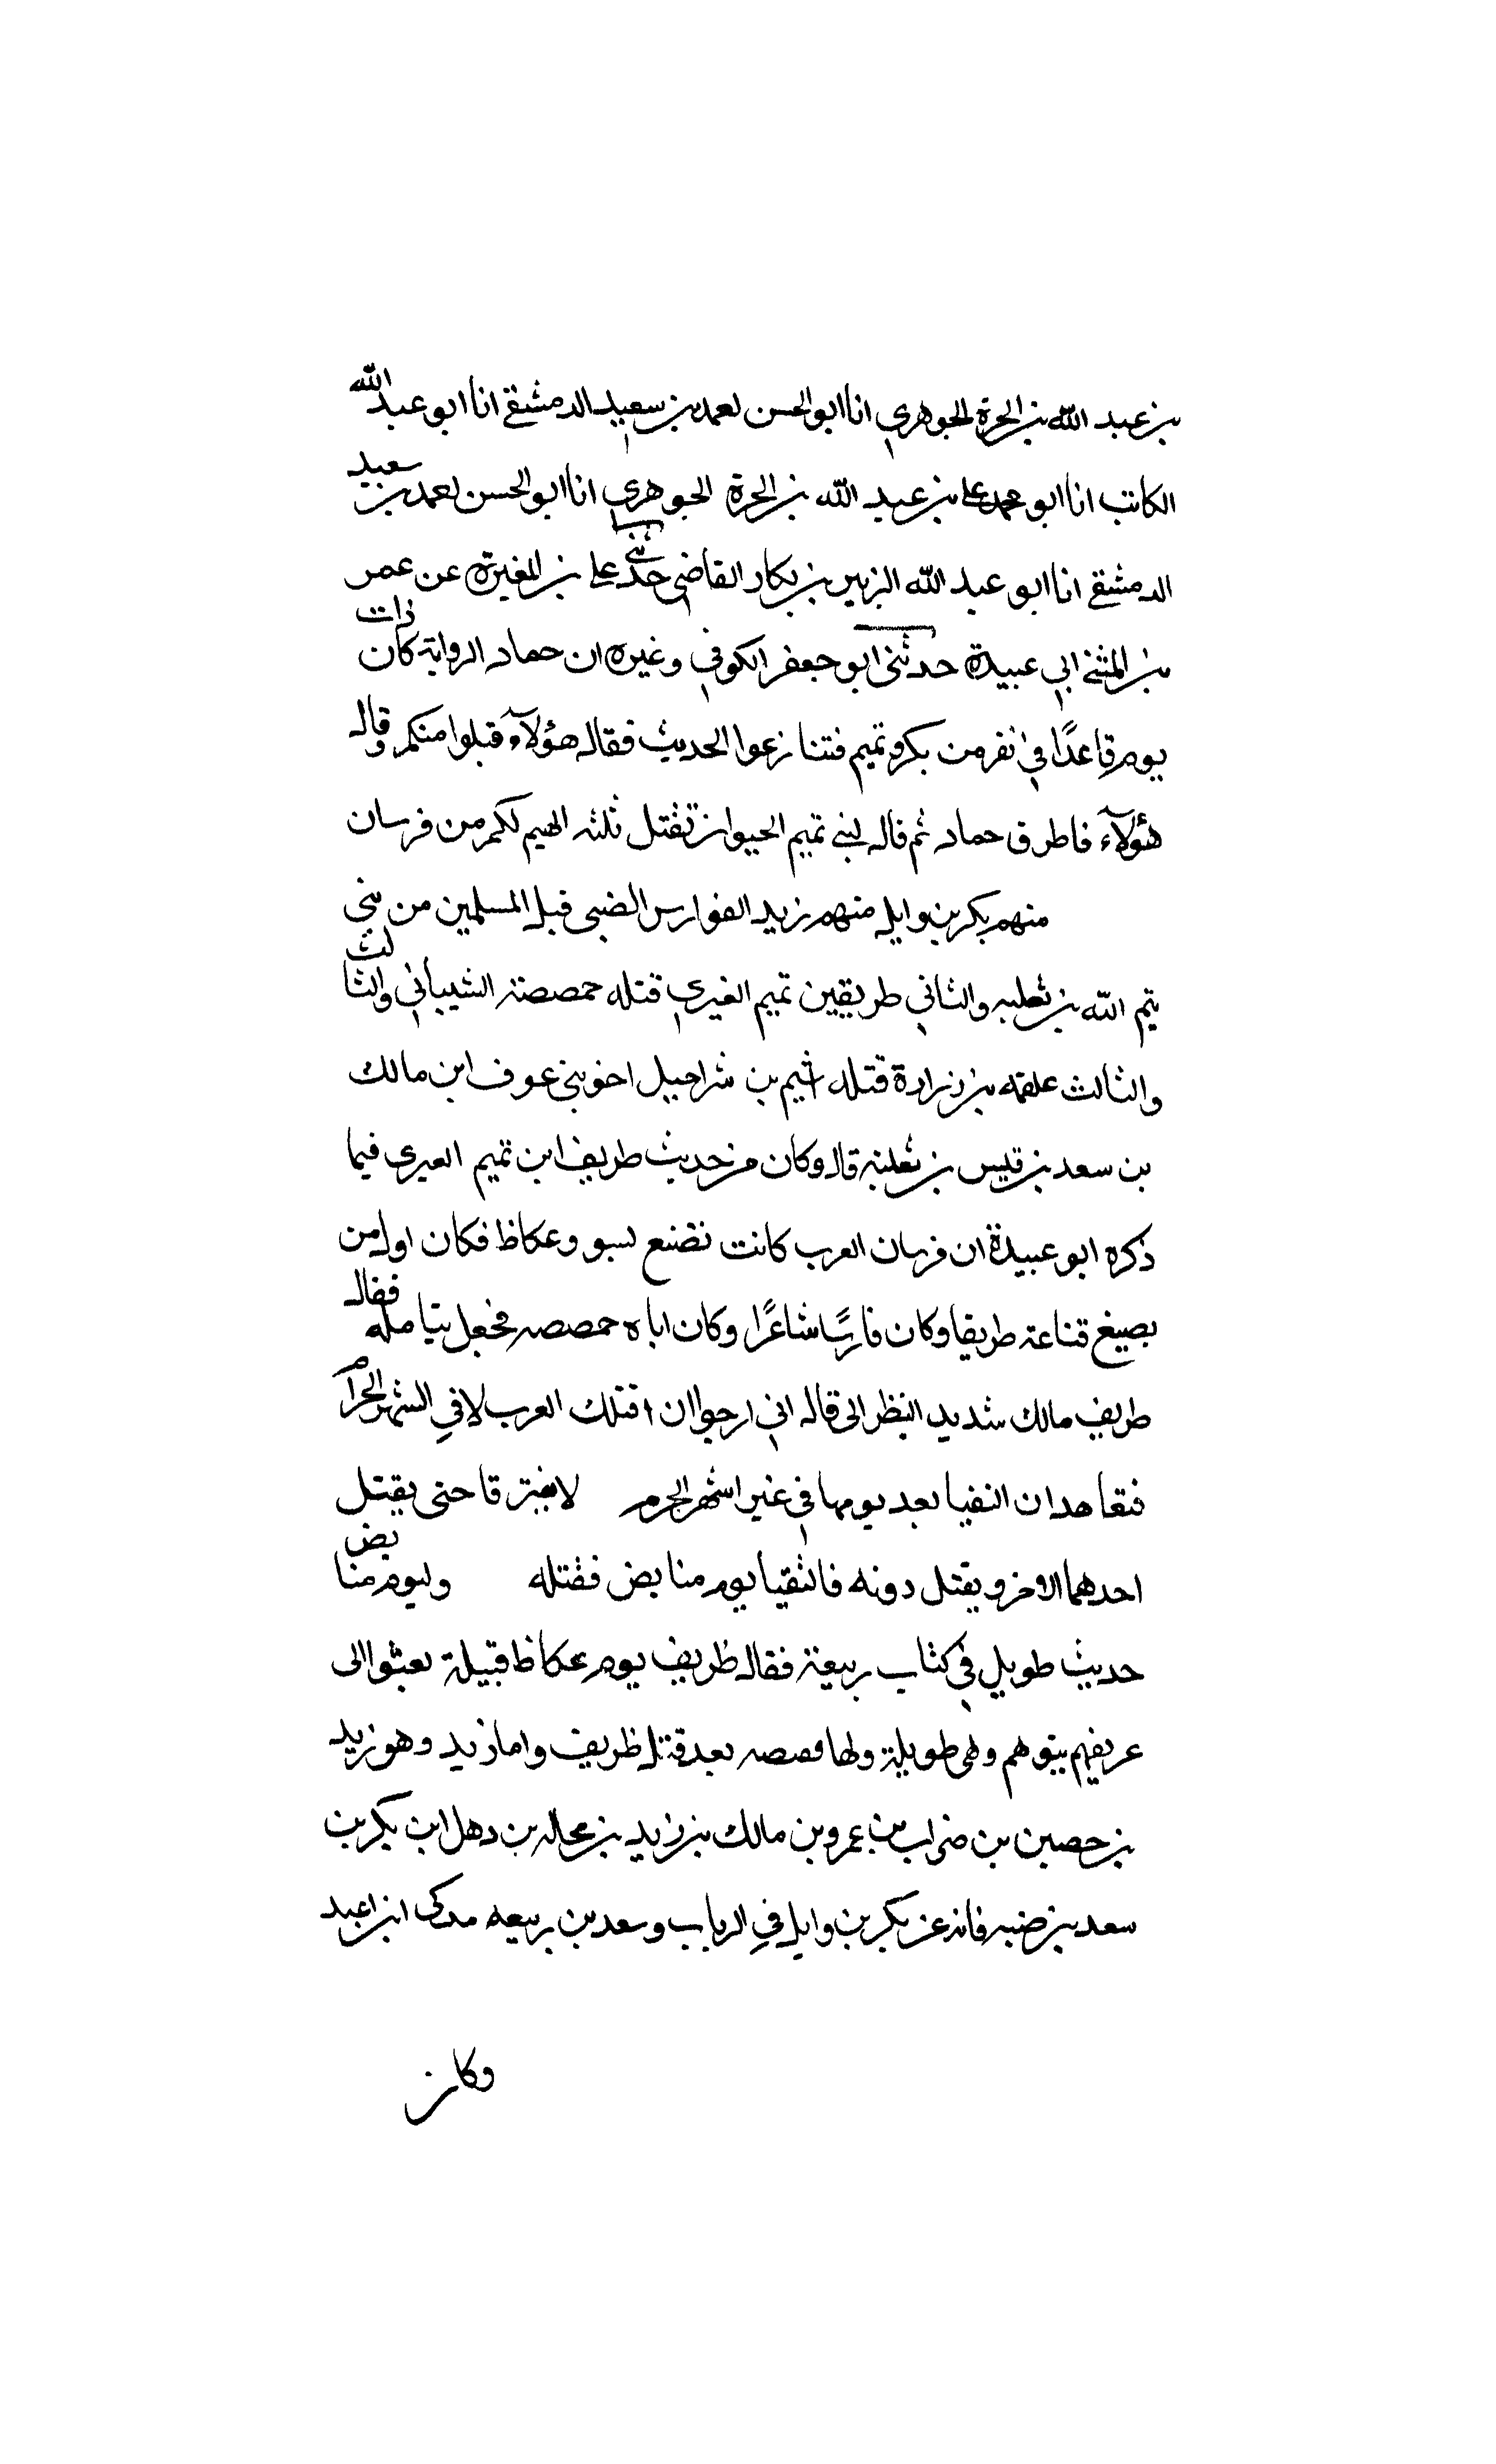 بن عبد الله بن الحرة الجوهري انا ابو الحسن احمد بن سعيد الدمشقي انا ابو عبد الله
الكاتب انا ابو محمد علي بن عبد الله بن الحرة الجوهري انا ابو الحسن احمد بن سعيد
الدمشقي انا ابو عبد الله الزبير بن بكار القاضي حدثني علي بن المغيرة عن عمر
بن المثنى ابي عبيدة حدثني ابو جعفر الكوفي وغيره ان حماد الرواية كان ذات
يوم قاعدًا في نفر من بكر وتميم فتنازعوا الحديث فقال هؤلآء قبلوا منكم وقال
هؤلآء فاطرق حماد ثم قال لبني تميم الحيوان تقتل ثلثه الهيم لكم من فرسان
منهم بكر بن وايل منهم زيد الفوارس الضبي قبل المسلمين من بني
تيم الله بن ثعلبه والثاني طريقين تميم الغيري قتله حمصصة الشيباني والثالث
والثالث علقمه بن زرارة قتله اشيم بن شراحيل اخو بني عوف ابن مالك
بن سعد بن قيس بن ثعلبة قال وكان من حديث طريف ابن تميم العيري فيما
ذكره ابو عبيدة ان فرسان العرب كانت تقنع لسبو وعكاظ فكان اول من
بصيغ قناعة طريفا وكان فارسًا شاعرًا وكان اباه حمصصه فجعل يتيامله فقال
طريف مالك شديد النظر الى قال اني ارجوا ان اقتلك العرب لا في الشهر الحرام
فتعاهدان التقيا بعد يومها في غير اشهر الحرم لا يفترقا حتى يقتل
احدهما الاخر ويقتل دونه فالتقيا يوم منابض فقتله وليوم منابض
حديث طويل في كتاب ربيعة فقال ظريف يوم عكاظ قبيلة بعثوا الى
عريفهم بيتوهم وهي طويلة ولها قصصه بعد قتل ظريف واما زيد وهو زيد
بن حصين بن ضراب بن عمرو بن مالك بن زايد بن محاله بن دهل ابن بكر بن
سعد بن ضبه فانه عن بكر بن وايل في الرباب وسعد بن ربيعه مدكى ابن اعبد
وكان